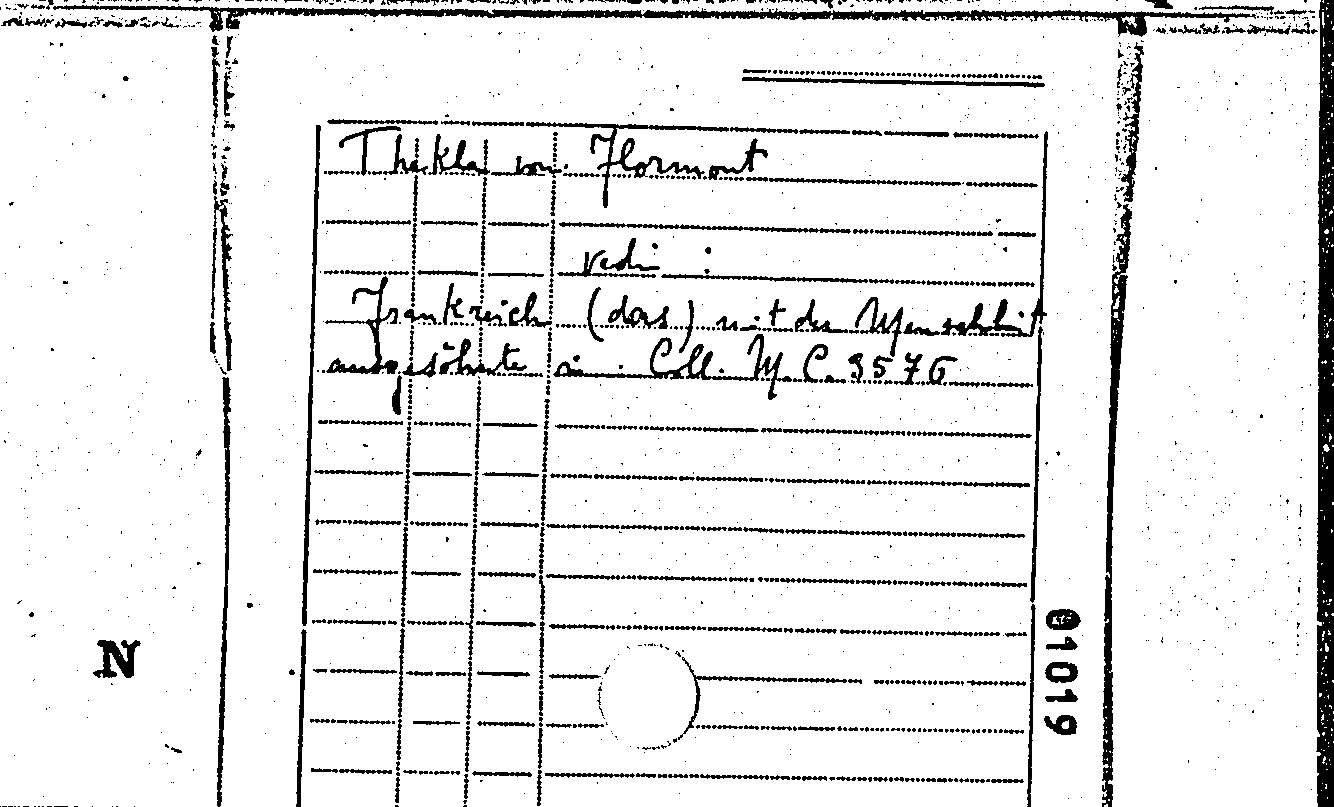 Thekla von Flormont
vedi :
Frankreich (das) mit der Menschheit
ausgesöhnte in Coll. M. C. 3576
N
01019